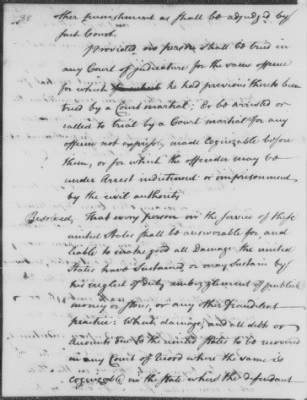 38
other punishment as shall be adjudged by
such Court.
Provided no person shall be tried in
any Court of judicature for the same offence
for which he had previous thereto been
tried by a Court martial; Or be arrested or
called to trial by a Court martial for any
offence not expressly made Cognizable before
them, or for which the offender may be
under Arrest indictment or imprisonment
by the civil authority
Resolved, That every person in the Service of these
united States shall be answerable for, and
liable to make good all Damage the united
States have Sustained or may Sustain by
his neglect of duty, embezzlement of publick
money or stores, or any other fraudulent
practice: Which damage, and all debts or
Accounts due to the united states to be recovered
in any Court of Record where the same is
cognizable in the State where the defendant